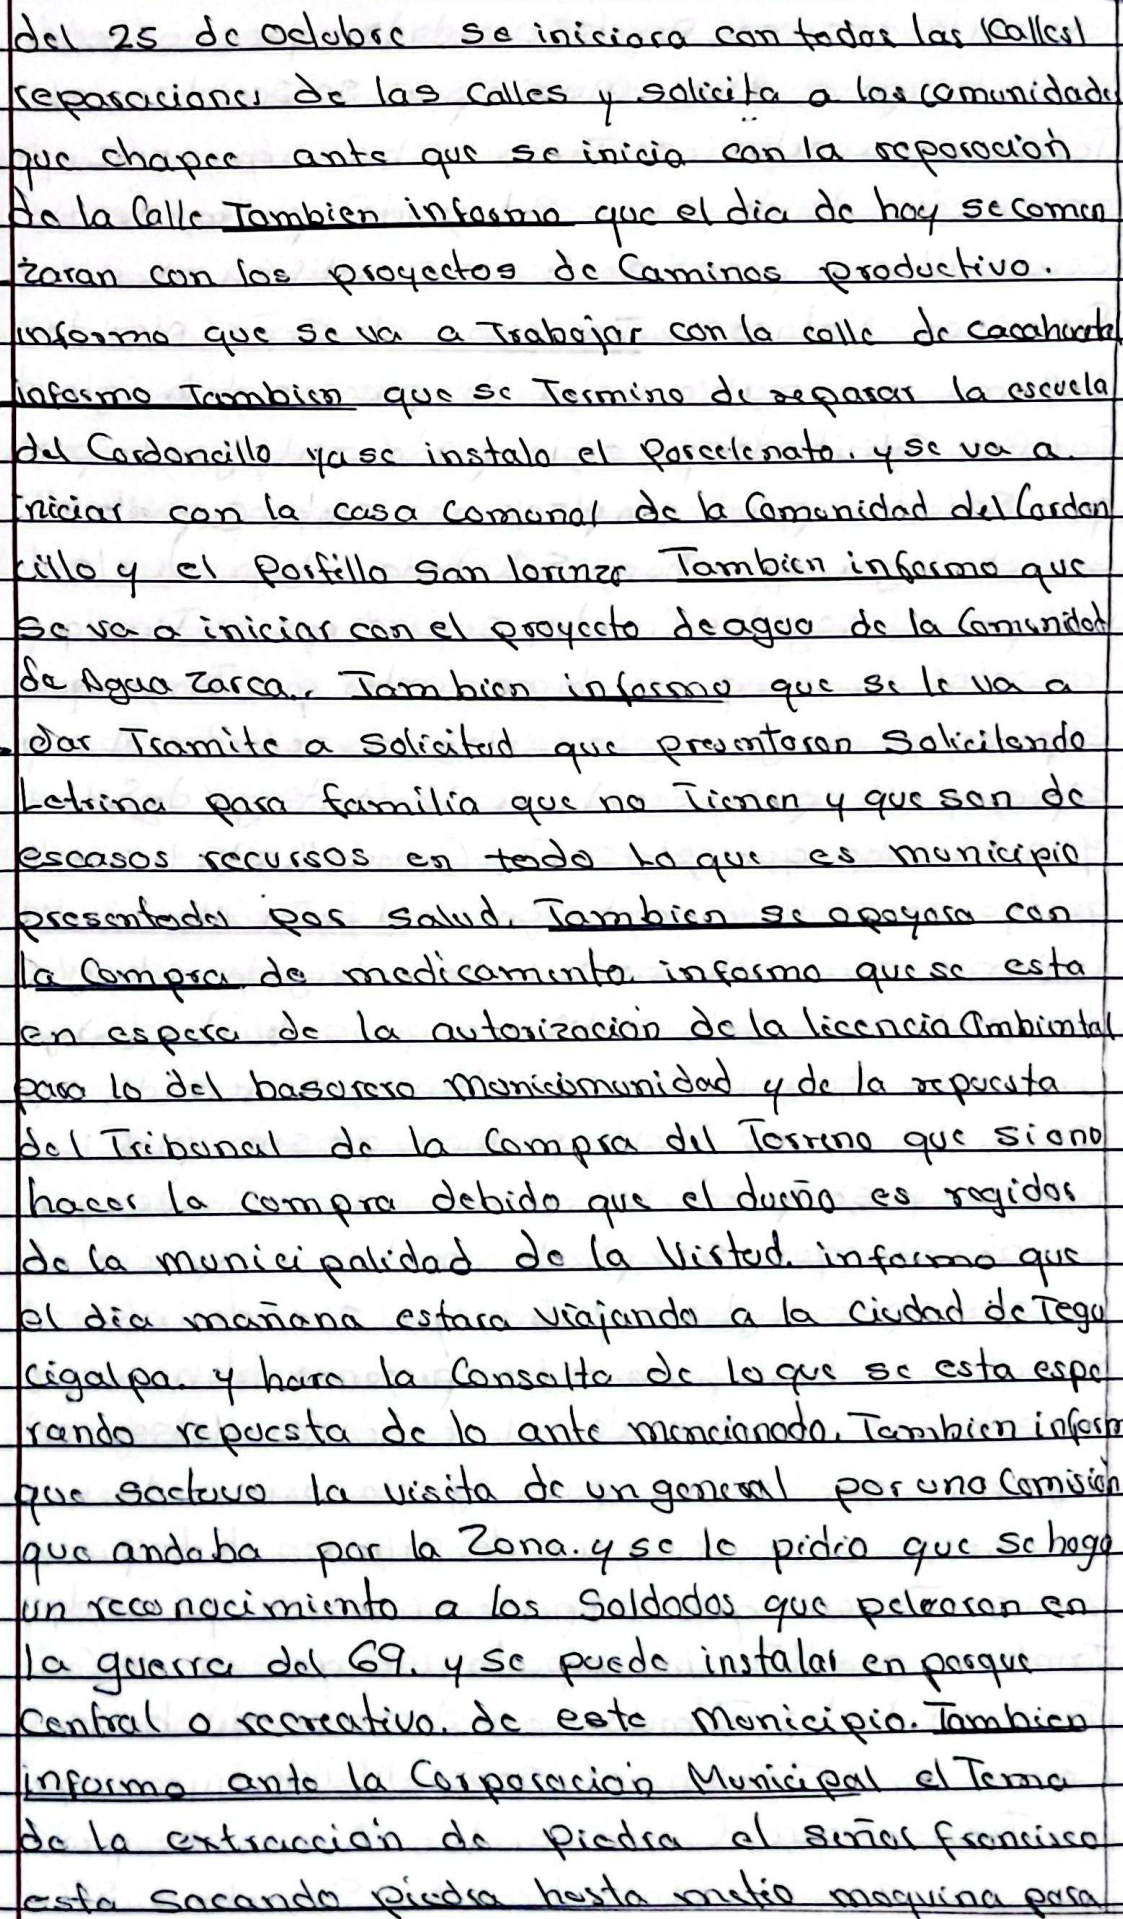 del 25 de Octubre se iniciara con todas las (Calles)
reparaciones de las Calles y solicita a las comunidade
que chapee ante que se inicia con la reparación
de la Calle Tambien informo que el dia de hoy se comen
zaran con los proyectos de Caminos productivo.
informo que se va a Trabajar con la calle de
informo Tambien que se Termino de reparar la escuela
del Cordoncillo ya se instalo el Porcelenato. y se va a
iniciar con la casa Comunal de la Comunidad del Cordon
cillo y el Porfillo San lorinzo Tambien informo que
se va a iniciar con el proyecto de agua de la Comunidad
de Agua Zarca.. Tambien informo que se le va a
dar Tramite a Solicitud que presentaron Solicitando
Letrina para familia que no Tienen y que son de
escasos recursos en todo Lo que es municipio
presentada por Salud. Tambien se apoyara con
la Compra de medicamento. informo que se esta
en espera de la autorización de la licencia ambiental
para lo del basurero Municomunidad y de la repuesta
del Tribunal de la Compra del Terreno que si ono
hacer la compra debido que el dueño es regidor
de la municipalidad de la Virtud. informo que
el dia mañana estara viajando a la Ciudad de Tegu
cigalpa. y hara la Consulta de lo que se esta espe
rando repuesta de lo ante mencionado. Tambien inform
que sactuvo la visita de un general por una Comisión
que andaba por la Zona. y se le pidio que se haga
un reconocimiento a los Soldados que pelearon en
la guerra del 69. y se puede instalar en parque
Central o recreativo. de este Municipio. Tambien
informo ante la Corporación Municipal el Tema
de la extracción de Piedra el señor francisco
esta Sacando piedra hasta metio maquina para